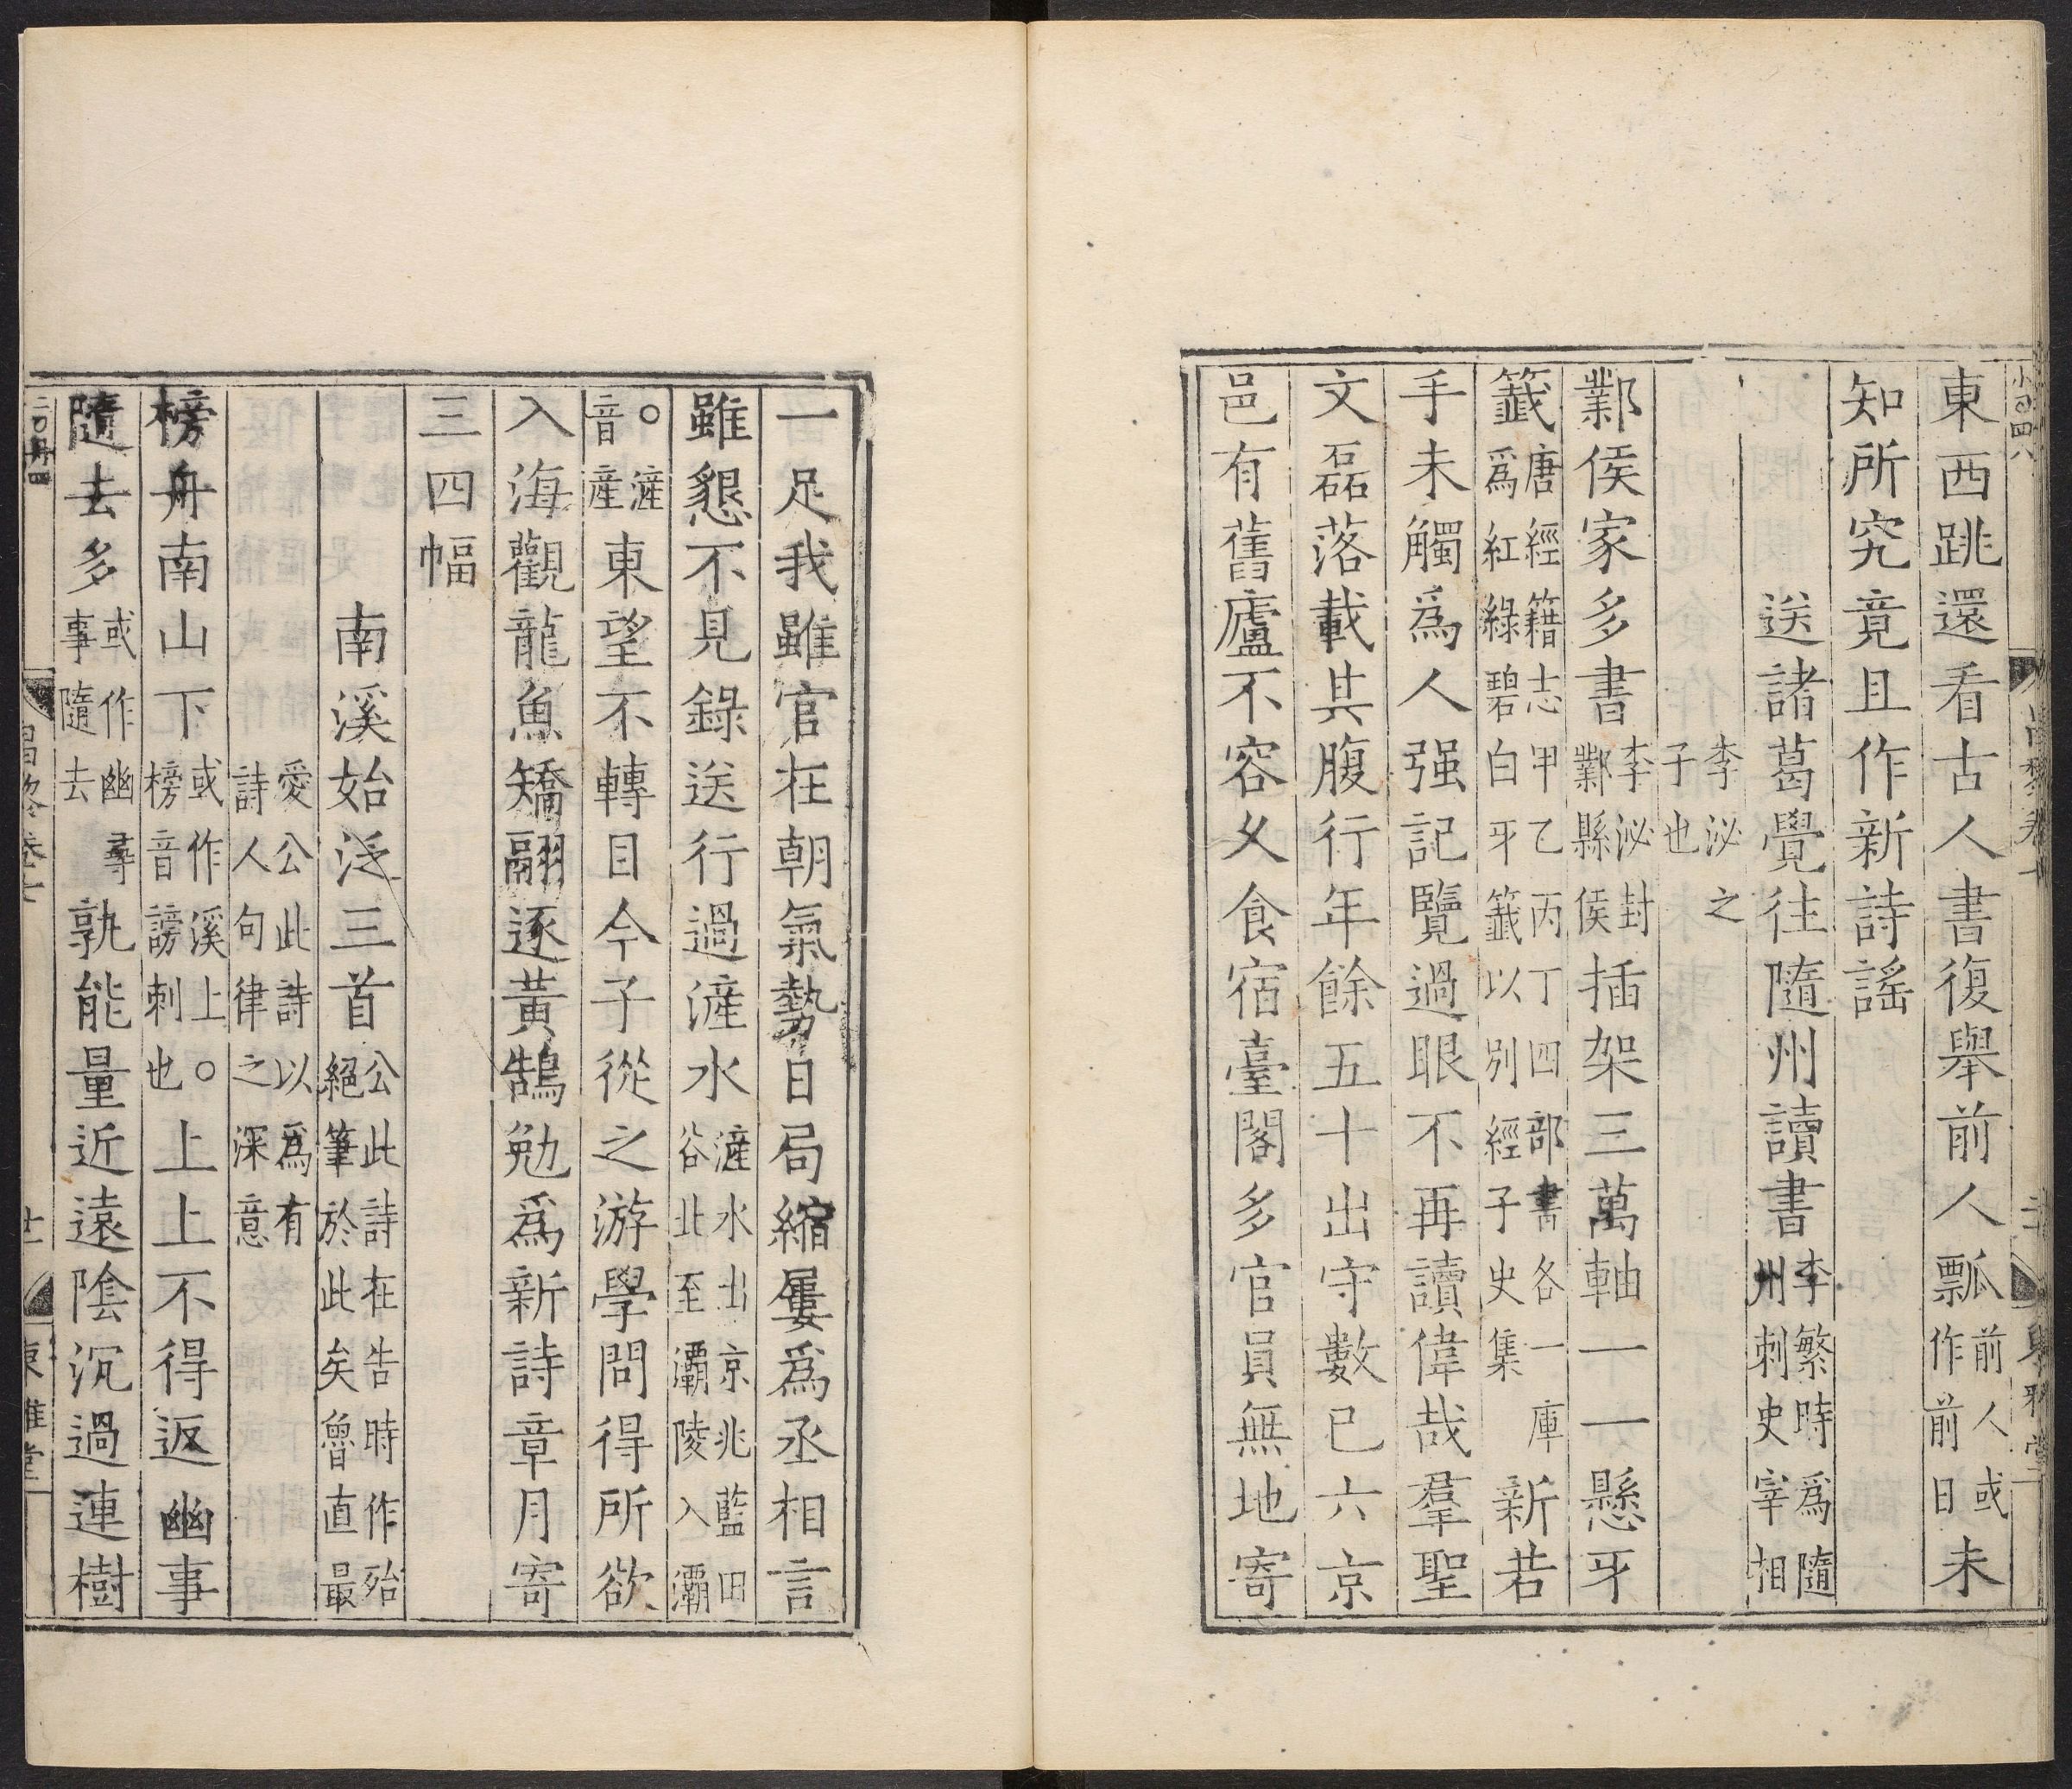 東西跳還看古人書復舉前人瓢前人或作前日未
知所究竟且作新詩謠
送諸葛覺往隨州讀書李繁時爲隨州刺史宰相
李泌之子也
鄴侯家多書李泌封鄴縣侯插架三萬軸一一懸牙
籤唐經籍志甲乙丙丁四部書各一庫爲紅綠碧白牙籤以別經子史集新若
手未觸爲人强記覽過眼不再讀偉哉羣聖
文磊落載其腹行年餘五十出守數已六京
邑有舊廬不容久食宿臺閣多官員無地寄
一足我雖官在朝氣勢日局縮屢爲丞相言
雖懇不見錄送行過滻水滻水出京兆藍田谷北至灞陵入灞
○滻音産東望不轉目今子從之游學問得所欲
入海觀龍魚矯翮逐黃鵠勉爲新詩章月寄
三四幅
南溪始泛三首公此詩在告時作殆絕筆於此矣魯直最
愛公此詩以爲有詩人句律之深意
榜舟南山下或作溪上○榜音謗刺也上上不得返幽事
隨去多或作幽事隨去尋孰能量近遠陰沉過連樹
東雅堂